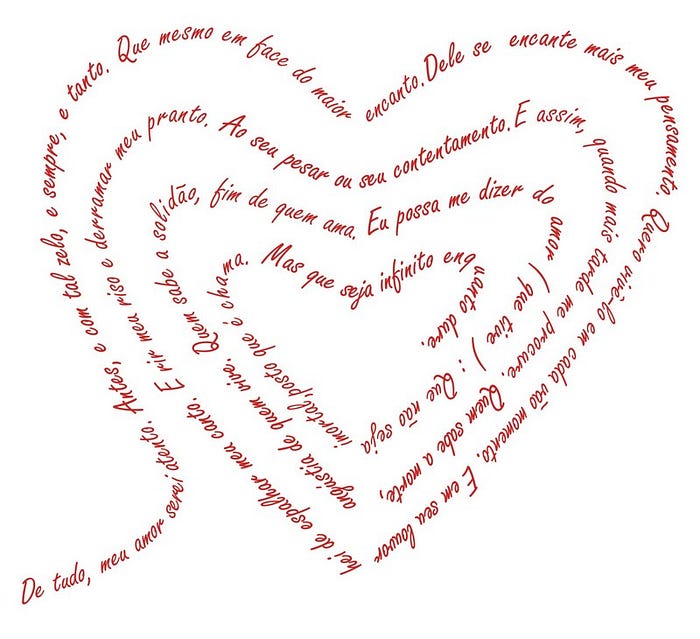 De tudo, meu amor serei atento. Antes, e com tal zelo, e sempre, e tanto. Que mesmo em face do maior encanto. Dele se encante mais meu pensamento. Quero vivê-lo em cada vão momento. E em seu louvor hei de espalhar meu canto. E rir meu riso e derramar meu pranto. Ao seu pesar ou seu contentamento. E assim, quando mais tarde me procure. Quem sabe a morte, angústia de quem vive. Quem sabe a solidão, fim de quem ama. Eu possa me dizer do amor (que tive) : Que não seja imortal, posto que é chama. Mas que seja infinito enquanto dure.